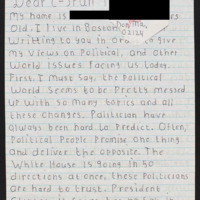 Dear C-Span
My name is
Old. I live in Boston
Writting to you in Or to give
My Views on Political, and other
World issues Facing us Today.
First, I Must Say, the Political
World Seems to be Pretty messed
up With So many topics and all
these Changes. Politician have
always been hard to Predict. Often,
Political People Promise one thing
and deliver the opposite. The
White House is going in 50
directions at once, these Politicians
are hard to trust. President